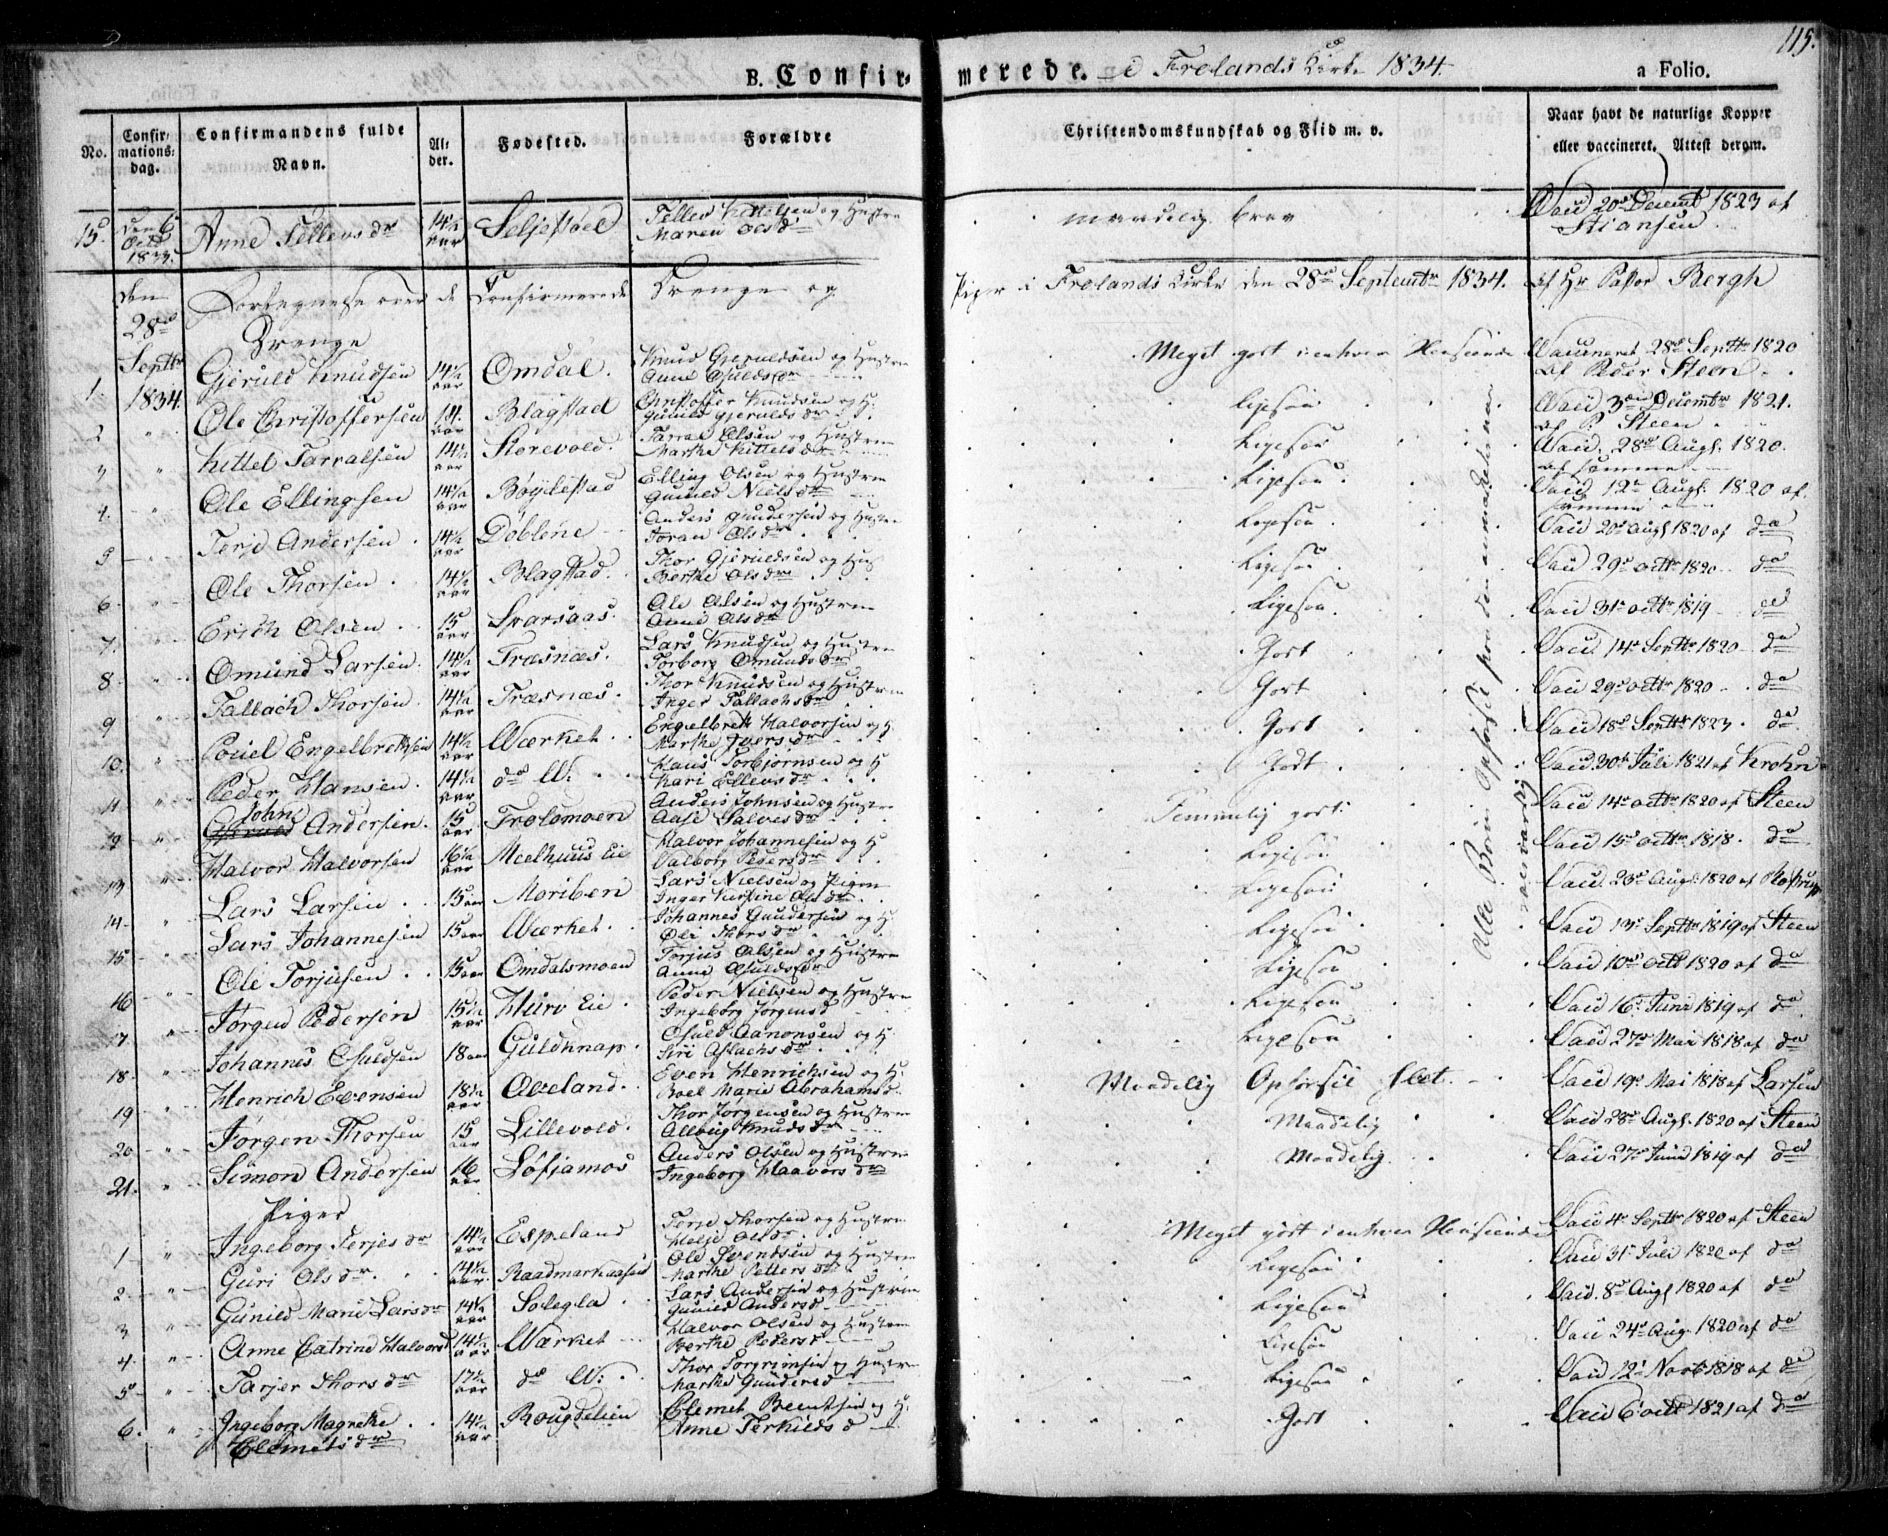 115.
B. Confirmerede. i Frolands Kirke 1834.
a Folio.
No.
Confirmations: dag.
Confirmandens fulde Navn.
Alder.
Fødested.
Forældre
Christendomskundskab og Flid m. v.
Naar havt de naturlige Kopper eller vaccineret. Attest derom.
15. den 6 Octb 1833. Anne Tellevsdr 14½ aar Seljestøel Tellev Kittelsen og Hustrue Maren Olsd maadelig Vaci 20d Decemb 1823 af Stiansen
den 28d Septbr 1834. Fortegnelse over de Confirmerede Drenge og Piger i Frolands Kirke den 28d Septembr 1834. af Hr Pastor Bergh
Drenge
1. Gjeruld Knudsen 14½ aar Omdal. Knud Gjeruldsen og Hustrue Anne Osuldsdr Meget godt i enhver Henseende Vaccineret 28d Septbr 1820 af Peder Steen
2 " Ole Christoffersen 14. aar Blagstad Christoffer Knudsen og H. Gunild Gjeruldsdr Ligesaa Vacci 3die Decembr 1821. af P. Steen
3 " Kittel Tarralsen 14½ aar Storevold. Tarral Olsen og Hustrue Marthe Kittelsdr Ligesaa Vacci. 28d Augs. 1820. af samme
4. " Ole Ellingsen 14½ aar Bøylestad Elling Olsen og Hustrue Gunild Nielsdr Ligesaa. Vaci 12te Augs. 1820 af. samme
5 " Terje Andersen 14½ aar Døblene Anders Gundersen og Hustrue Joran Olsdr Ligesaa. Vaci 20d Augs 1820 af do
6. " Ole Thorsen 14½ aar Blagstad. Thor Gjeruldsen og Hus Berthe Olsdr Ligesaa Vaci 29d octbr 1820 do
7. " Erich Olsen 15 aar Svarsaas. Ole Olsen og Hustrue Anne Olsdr Ligesaa Vaci 31d octbr 1819 do
8 " Omund Larsen. 14½ aar Træsnæs. Lars Knudsen og Hustrue Torborg Omundsdr Godt Vaci 14d Septbr 1820 do
9 " Tallach Thorsen 14½ aar Træsnæs. Thor Knudsen og Hustrue Inger Tallachsdr Godt Vaci 29d octbr 1820 do
10. " Poul Engelbrethsen 14½ aar Værket Engelbreth Halvorsen og H Marthe Iversdr Godt Vaci 18d Septbr 1823. do
11 " Peder Hansen. 14½ aar do V. Hans Torbjørnsen og H Kari Ellevsdr Godt Vaci 30d Juli 1821 af Krohn
12 " John Andersen. 15 aar Frolomoen Anders Johnsen og Hustrue Aase Salvesdr Temmelig godt. Vaci 14d octbr 1820 af Steen
13 " Halvor Halvorsen 16½ aar Meelhuus Eie Halvor Johannesen og H Valborg Pedersdr Ligesaa Vaci 15d octbr 1818. do
14. " Lars Larsen 15 aar Moriben Lars Nielsen og Pigen Inger Kirstine Olsdr Ligesaa Vaci. 23d Augs. 1820 af
15 " Lars Johannesen 15 aar Værket Johannes Gundersen og H. Oli Thorsdr Ligesaa Vaci 13d Septbr 1819 af Steen
16 " Ole Torjusen 15 aar Omdalsmoen Torjus Olsen og Hustrue Anne Osuldsdr Ligesaa Vaci 10d octb 1820 af do
17 " Jørgen Pedersen 15½ aar Hurv Eie Peder Nielsen og Hustrue Ingeborg Jørgensd Ligesaa Vaci 16d Juni 1819 af do
18 " Johannes Osuldsen 18 aar Guldknap. Osuld Aanonsen og H Siri Aslachsdr Ligesaa Vaci 27d Mai 1818 af do
19 " Henrich Evensen 18½ aar Aveland Even Henrichsen og H. Boel Marie Abrahamsd Maadelig Opførsel slet Vaci 19d Mai 1818 af Larsen
20 " Jørgen Thorsen 15 aar Lillevold. Thor Jørgensen og Hustrue Alleug Knudsdr Maadelig Vaci 28d Augs. 1820 af Steen
21. " Simon Andersen 16 aar Løfjamos Anders Olsen og Hustrue Ingeborg Haavorsdr Maadelig. Vaci 27d Juni 1819 af do
Alle Børns Opførsel
Piger
1 " Ingeborg Terjesdr 14½ aar Espeland Terje Thorsen og Hustrue Helje Olsdr Meget godt i enhver Henseende Vaci 4d Septb 1820 af Steen
2. " Guri Olsdr. 14½ aar. Raadmarkaasen Ole Svendsen og Hustrue Marthe Pettersdr Ligesaa Vaci 31d Juli 1820 af do
3 " Gunild Marie Larsdr 14½ aar Solegla Lars Andersen og Hustrue Gunild Andersd Ligesaa Vaci. 8d Augs 1820 af do
4. " Anne Catrine Halvorsd 14½ aar Værket Halvor Olsen og Hustrue Berthe Pedersd Ligesaa Vaci 24d Aug. 1820 af do
5 " Tarjer Thorsdr 17½ aar do V. Thor Torgrimsen og Hustrue Marthe Gundersd Ligesaa Vaci 12d Novb 1818 af do
6. " Ingeborg Magrethe Clemetsdr 14½ aar Rougdelien Clemet Berntsen og H. Anne Terkildsd Godt Vaci 6 octb 1821 af do